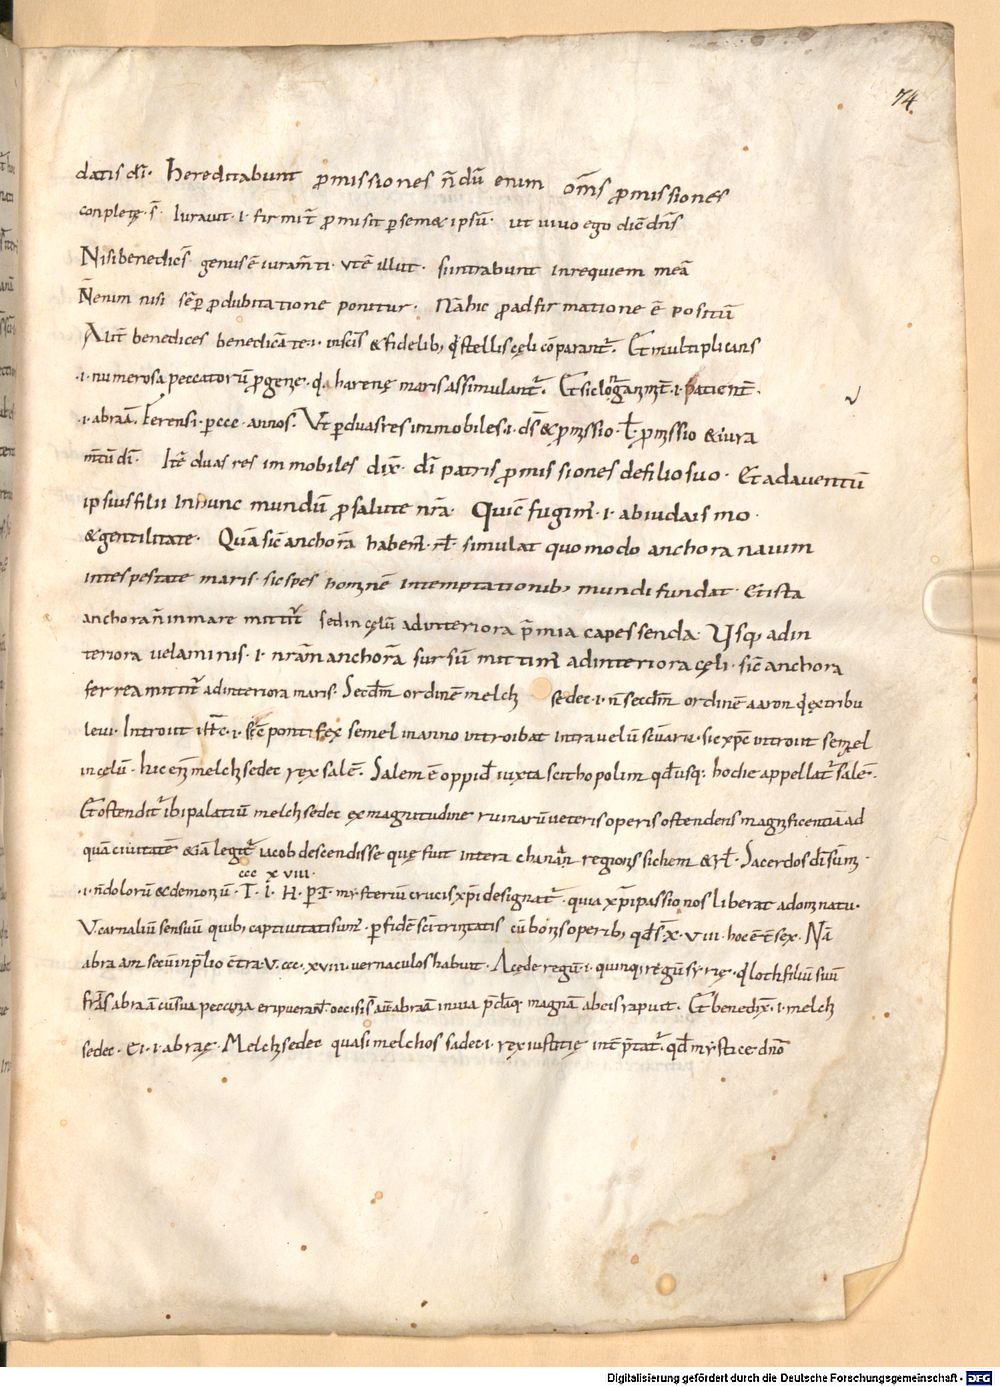 74
datis dī· Hereditabunt promissiones n̄ dū enim om̄s promissiones
conplete s̄· Iuravit ·i· firmit̄ promisit per semet ipsū· ut vivo ego dic̄ dn̄s
Nisi benedic̄s genus ē iuram̄ti· ut ē illut· si intrabunt in requiem meā
N̄ enim nisi sēp pro dubitatione ponitur· Nā hic pro adfirmatione ē positū
Alit̄ benedices benedicā te ·i· in sc̄is & fidelib; q̄ stellis cęli conparant̄· Et multiplicans
·i· numerosa peccatorū p̄genie· q̄ harenę maris assimulant̄· Et sic longanimit̄ ·i· patient̄·
·i· abraā· ferens ·i· per ccc· annos· Ut per duas res immobiles ·i· ds̄ & promissio· ł promissio & iura
mtū dī· Itē duas res immobiles dix̄· dī patris promissiones de filio suo· Et adventū
ipsius filii in hunc mundū pro salute nr̄a· Qui c̄fugim̄· ·i· a biudaismo·
& gentilitate· Quā sic̄ anchorā habem̄· ·r̄ł· simulat quomodo anchora navim
in tespestate maris· sic spes hominē in temptationib; mundi fundat· Et ista
anchora n̄ in mare mittit̄ sed in cęlū ad interiora p̄mia capessenda· Usq; ad in
teriora velaminis· ·i· nr̄am anchorā sursū mittim̄ ad interiora cęli· sic̄ anchora
ferrea mittit̄ ad interiora maris· Secdm̄ ordinē melchi sedec ·i· n̄ secdm̄ ordinē aaron q̄ ex tribu
levi· Introivit ·i· sic̄ pontifex semel in anno introibat intra velū sc̄uarii· sic xp̄c introivit semel
in cęlū· hic eni melchisedec rex salē· Salem ē oppid̄ iuxta scithopolim qd̄ usq; hodie appellat̄ salē·
Et ostendit̄ ibi palatiū melchisedec ex magnitudine ruinarū veteris operis ostendens magnificentiā ad
quam civitatē & iā legit̄ iacob descendisse quę fuit in terra chanaan regionis sichem & r̄ł· Sacerdos dī sūmi·
ccc x viii·
·i· n̄ dolorū & demoniū· T· I· H· P̄· T· mysteriū crucis xp̄i designat̄· quia xp̄i passio nos liberat a dominatu·
V· carnaliū sensuū quib; captivitati sum̄· per fidē sc̄i trinitatis cū bonis operib; qd̄ s̄ x· viii· hoc ē t̄ sex· Nā
abraam secū in p̄lio c̄tra· V· ccc· xviii· vernaculos habuit· A cęde regū ·i· quinq; regū syrię· q̄ loth filiū suū
frīs abraā c̄ sua peccunia eripuerant̄· occisis autē abraam in via p̄daq; magnā ab eis rapuit· Et benedix̄· ·i· melchi
sedec· Ei ·i· abraę· Melchisedec quasi melchos sadec ·i· rex iustitię int̄pr̄tat̄· qd̄ mystice dn̄o
Digitalisierung gefördert durch die Deutsche Forschungsgemeinschaft - DFG